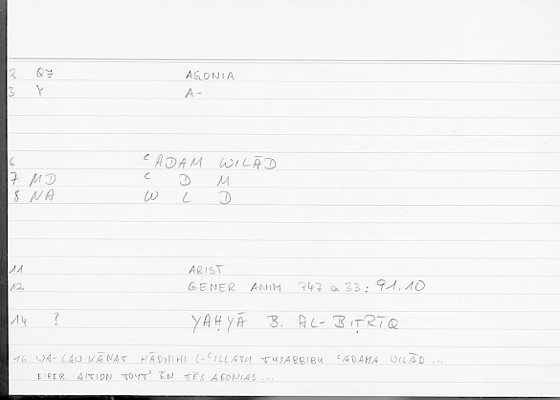 2 QZ AGONIA
3 Y A-
6 ʿADAM WILĀD
7 MD ʿ D M
8 NA W L D
11 ARIST
12 GENER ANIM 747 a 33; 91.10
14 ? YAḤYĀ B. AL-BIṬRĪQ
16 WA-LAU KĀNAT HĀDHIHI L-ʿILLATU TUSABBIBU ʿADAMA WILĀD ...
EIPER AITION TOUT' ĒN TĒS AGONIAS ...